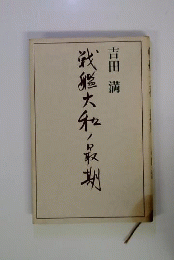 吉田 満
戦艦大和ノ最期